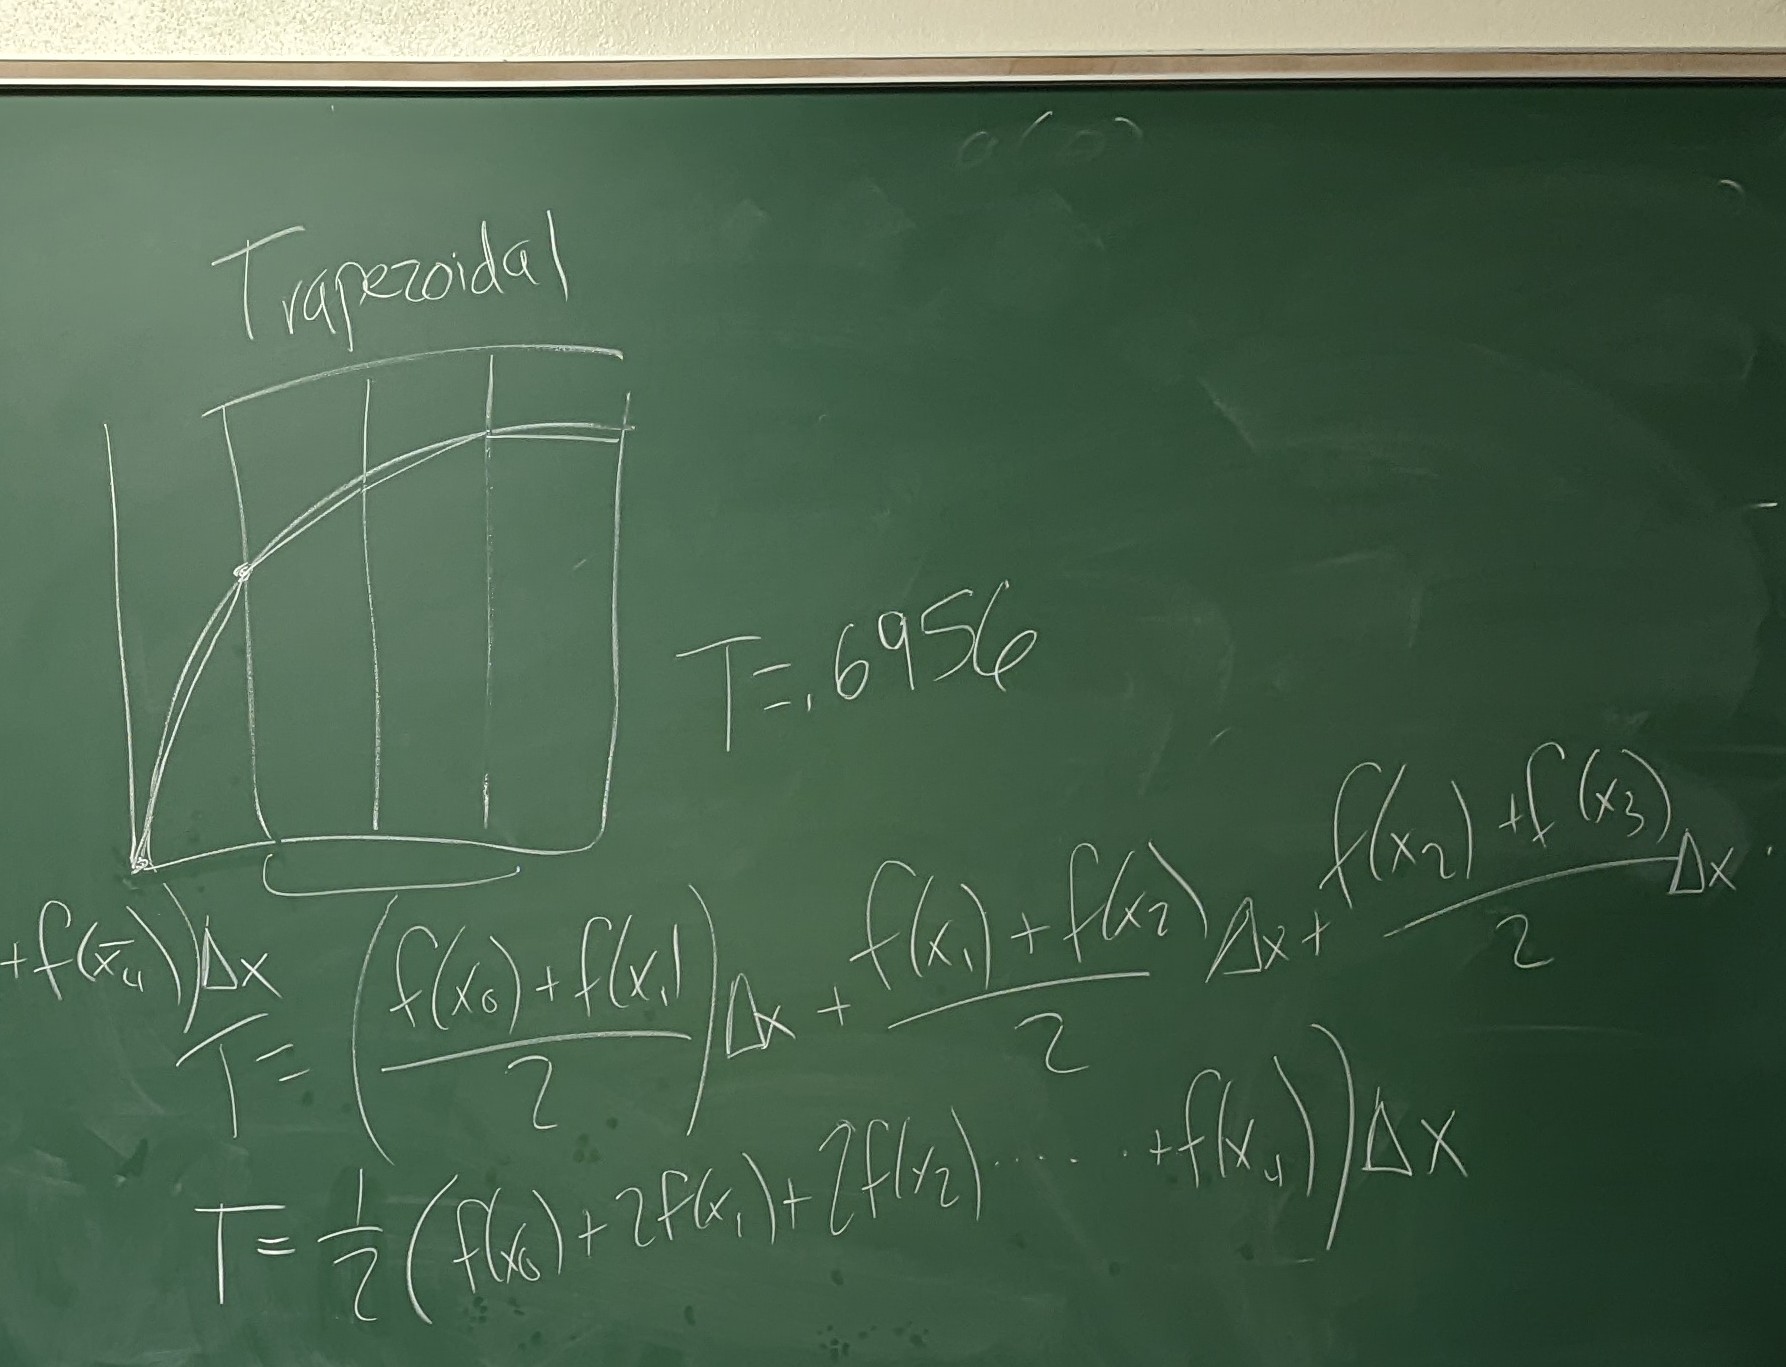 Trapezoidal
T=.6956
+f(x̄₄))Δx
T= (f(x₀)+f(x₁)/2)Δx + f(x₁)+f(x₂)/2 Δx + f(x₂)+f(x₃)/2 Δx
T= 1/2 (f(x₀)+2f(x₁)+2f(x₂)...... +f(x₄))Δx